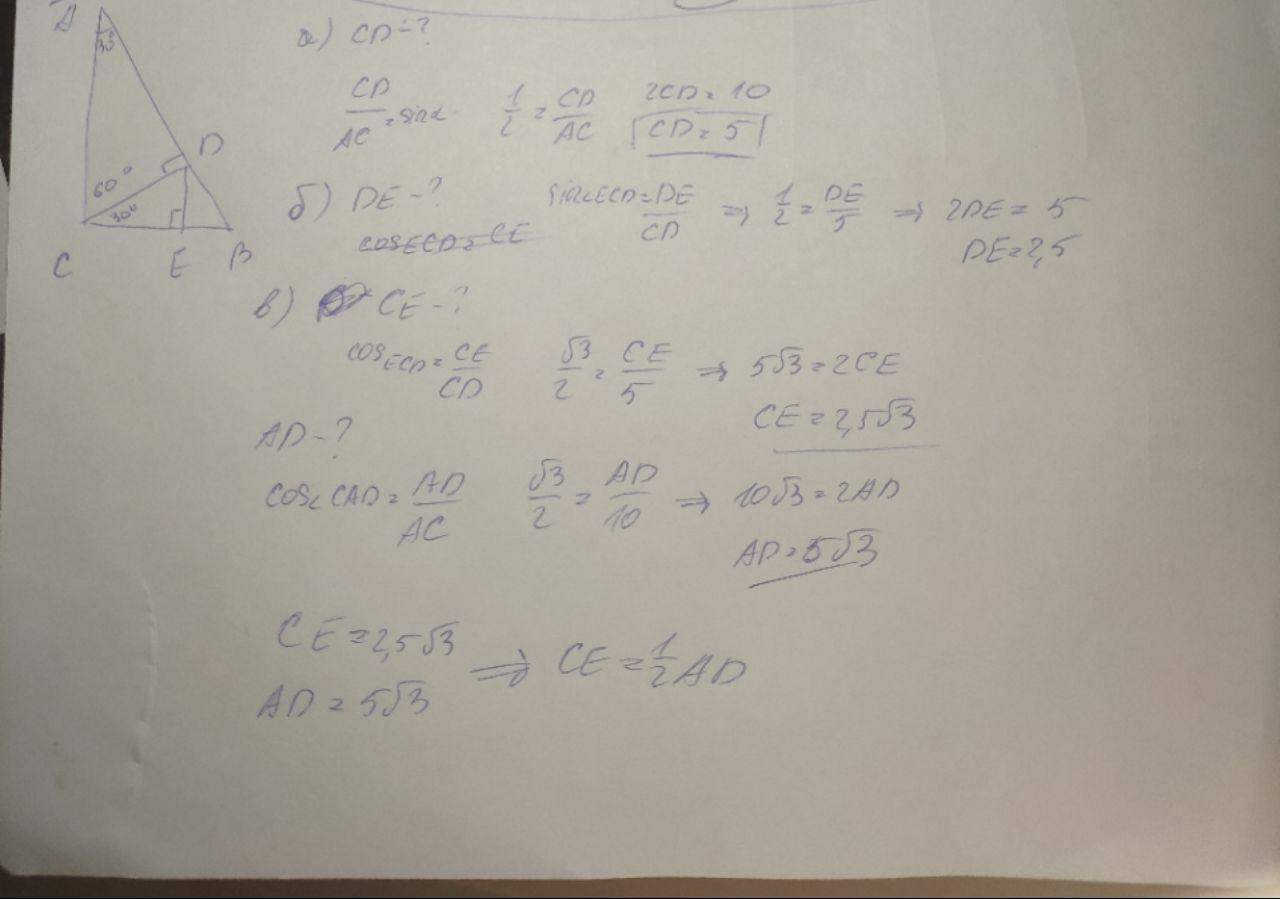 A
30°
D
60°
30°
C E B
а) CD-?
CD/AC = sinα 1/2 = CD/AC 2CD = 10
CD = 5
б) DE-? sin∠ECD = DE/CD ⇒ 1/2 = DE/5 ⇒ 2DE = 5
cosECD = CE DE = 2,5
в) CE-?
cosECD = CE/CD √3/2 = CE/5 ⇒ 5√3 = 2CE
CE = 2,5√3
AD-?
cos∠CAD = AD/AC √3/2 = AD/10 ⇒ 10√3 = 2AD
AD = 5√3
CE = 2,5√3
⇒ CE = 1/2 AD
AD = 5√3